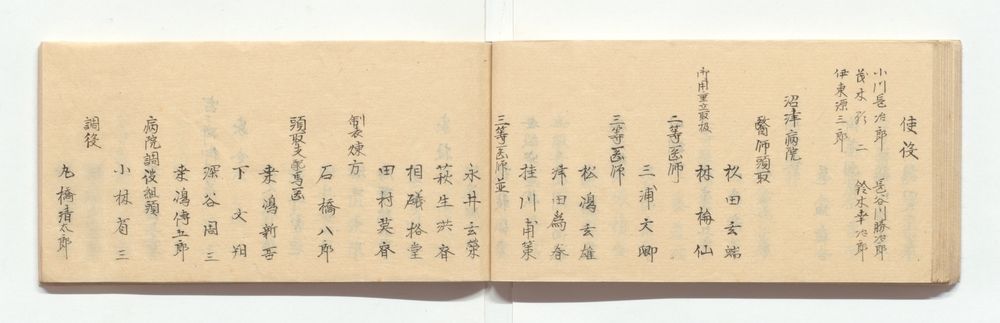 使役
小川長次郎 長谷川勝次郎
茂木形二 鈴木幸次郎
伊東源三郎
沼津病院
醫師頭取
杦田玄端
御用重立取扱
林梅仙
二等医師
三浦文卿
三等医師
松濤玄雄
津田為春
桂川甫策
三等医師並
永井玄榮
萩生洪齋
相磯格堂
田村英齋
製煉方
石橋八郎
頭取支配馬医
桒濤新吾
下文翔
深谷周三
桒濤傳五郎
病院調役組頭
小林省三
調役
丸橋清太郎